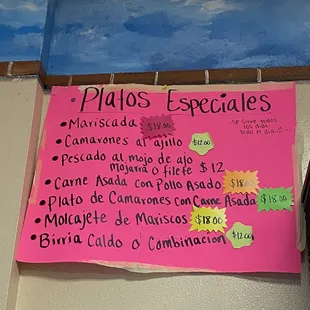 Platos Especiales
• Mariscada $18.00
• Camarones al ajillo $12.00
• Pescado al mojo de ajo
mojarra o filete $12
• Carne Asada con Pollo Asado $18.00
• Plato de Camarones con Carne Asada $18.00
• Molcajete de Mariscos $18.00
• Birria Caldo o Combinacion $12.00
se sirve todos
los dias
todo el dia